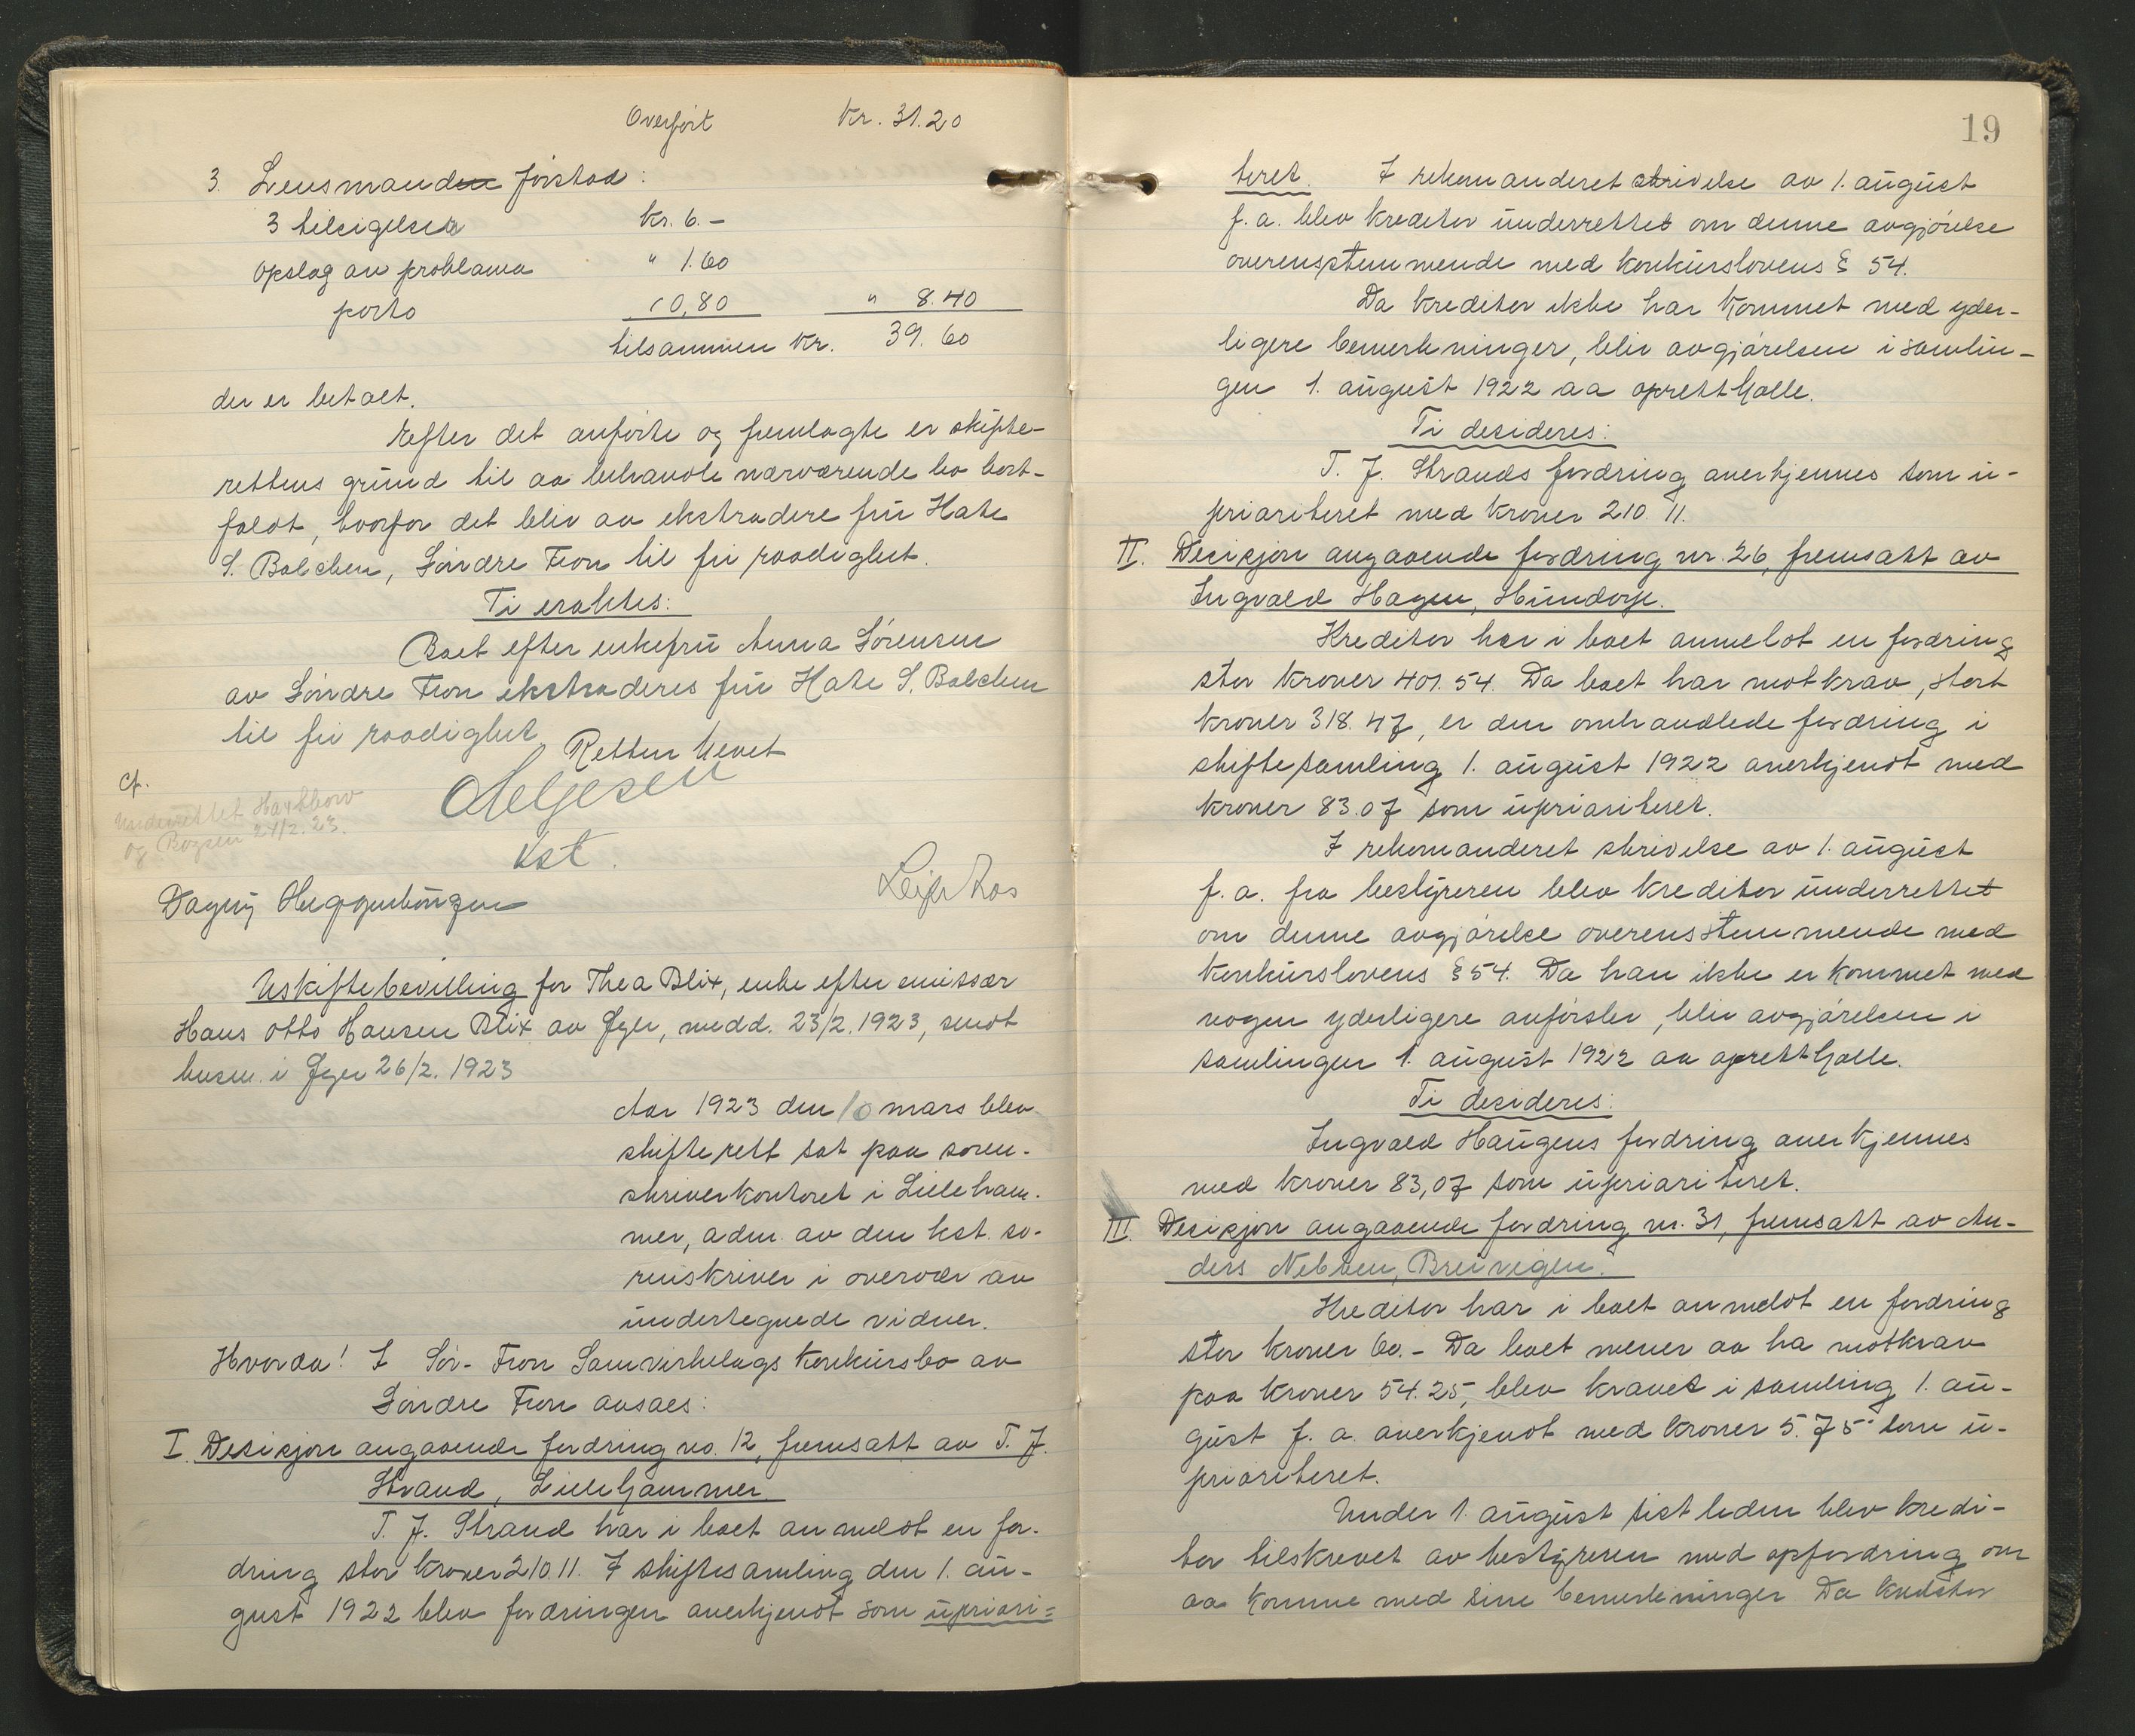 Overført Kr. 31.20
3. Lensmanden forstod:
3 tilsigelser kr. 6.-
Opslag av proklama " 1.60
porto " 0,80 " 8.40
tilsammen kr. 39.60
der er betalt.
Efter det anførte og fremlagte er skifte-
rettens grund til aa behandle nærværende bo bort-
faldt, hvorfor det bliv aa ekstradere fru Kate
S. Balchen, Søndre Fron til fri raadighet.
Ti eraktes:
Boet efter enkefru Anna Sørensen
av Søndre Fron ekstraderes fru Kate S. Balchen
til fri raadighet.
Retten hevet
cf.
Underrettet
og 24/2.23.
Helgesen
kst.
Dagny Huggenbergen
Leif Aos
Uskiftebevilling for Thea Blix, enke efter emissær
Hans Otto Hansen Blix av Øyer, medd. 23/2.1923, sendt
lensm. i Øyer 26/2.1923
Aar 1923 den 10 mars blev
skifterett sat paa soren-
skriverkontoret i Lilleham-
mer, adm. av den kst. so-
renskriver i overvær av
undertegnede vidner.
Hvorda! I Sør-Fron Samvirkelags konkursbo av
Søndre Fron avsaes:
I. Desisjon angaaende fordring no. 12, fremsatt av T. J.
Strand, Lillehammer.
T. J. Strand har i boet anmeldt en for-
dring stor kroner 210.11. I skiftesamling den 1. au-
gust 1922 blev fordringen anerkjendt som upriori=
19
teret. I rekomanderet skrivelse av 1. august
f. a. blev kreditor underrettet om denne avgjørelse
overensstemmende med konkurslovens § 54.
Da kreditor ikke har kommet med yder-
ligere bemerkninger, bliv avgjørelsen i samlin-
gen 1. august 1922 aa oprettholle.
Ti desideres:
T. J. Strands fordring anerkjennes som u-
prioriteret med kroner 210.11.
II. Desisjon angaaende fordring nr. 26, fremsatt av
Ingvald Hagen, Hundorp.
Kreditor har i boet anmeldt en fordring
stor kroner 401.54. Da boet har motkrav, stort
kroner 318.47, er den omhandlede fordring i
skiftesamling 1. august 1922 anerkjendt med
kroner 83.07 som uprioriteret.
I rekomanderet skrivelse av 1. august
f. a. fra bestyreren blev kreditor underrettet
om denne avgjørelse overensstemmende med
konkurslovens § 54. Da han ikke er kommet med
nogen yderligere anførsler, bliv avgjørelsen i
samlingen 1. august 1922 aa oprettholle.
Ti desideres:
Ingvald Haugens fordring anerkjennes
med kroner 83,07 som uprioriteret.
III. Desisjon angaaende fordring nr. 31, fremsatt av An-
ders Nebben, Breivegen.
Kreditor har i boet anmeldt en fordring
stor kroner 60.- Da boet mener aa ha motkrav
paa kroner 54.25, blev kravet i samling 1. au-
gust f. a. anerkjendt med kroner 5.75 som u-
prioriteret.
Under 1. august sist leden blev kredi-
tor tilskrevet av bestyreren med opfordring om
aa komme med sine bemerkninger Da kreditor